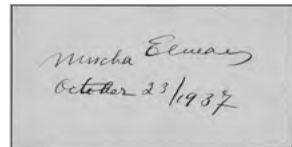 Mischa Elman
October 23/1937